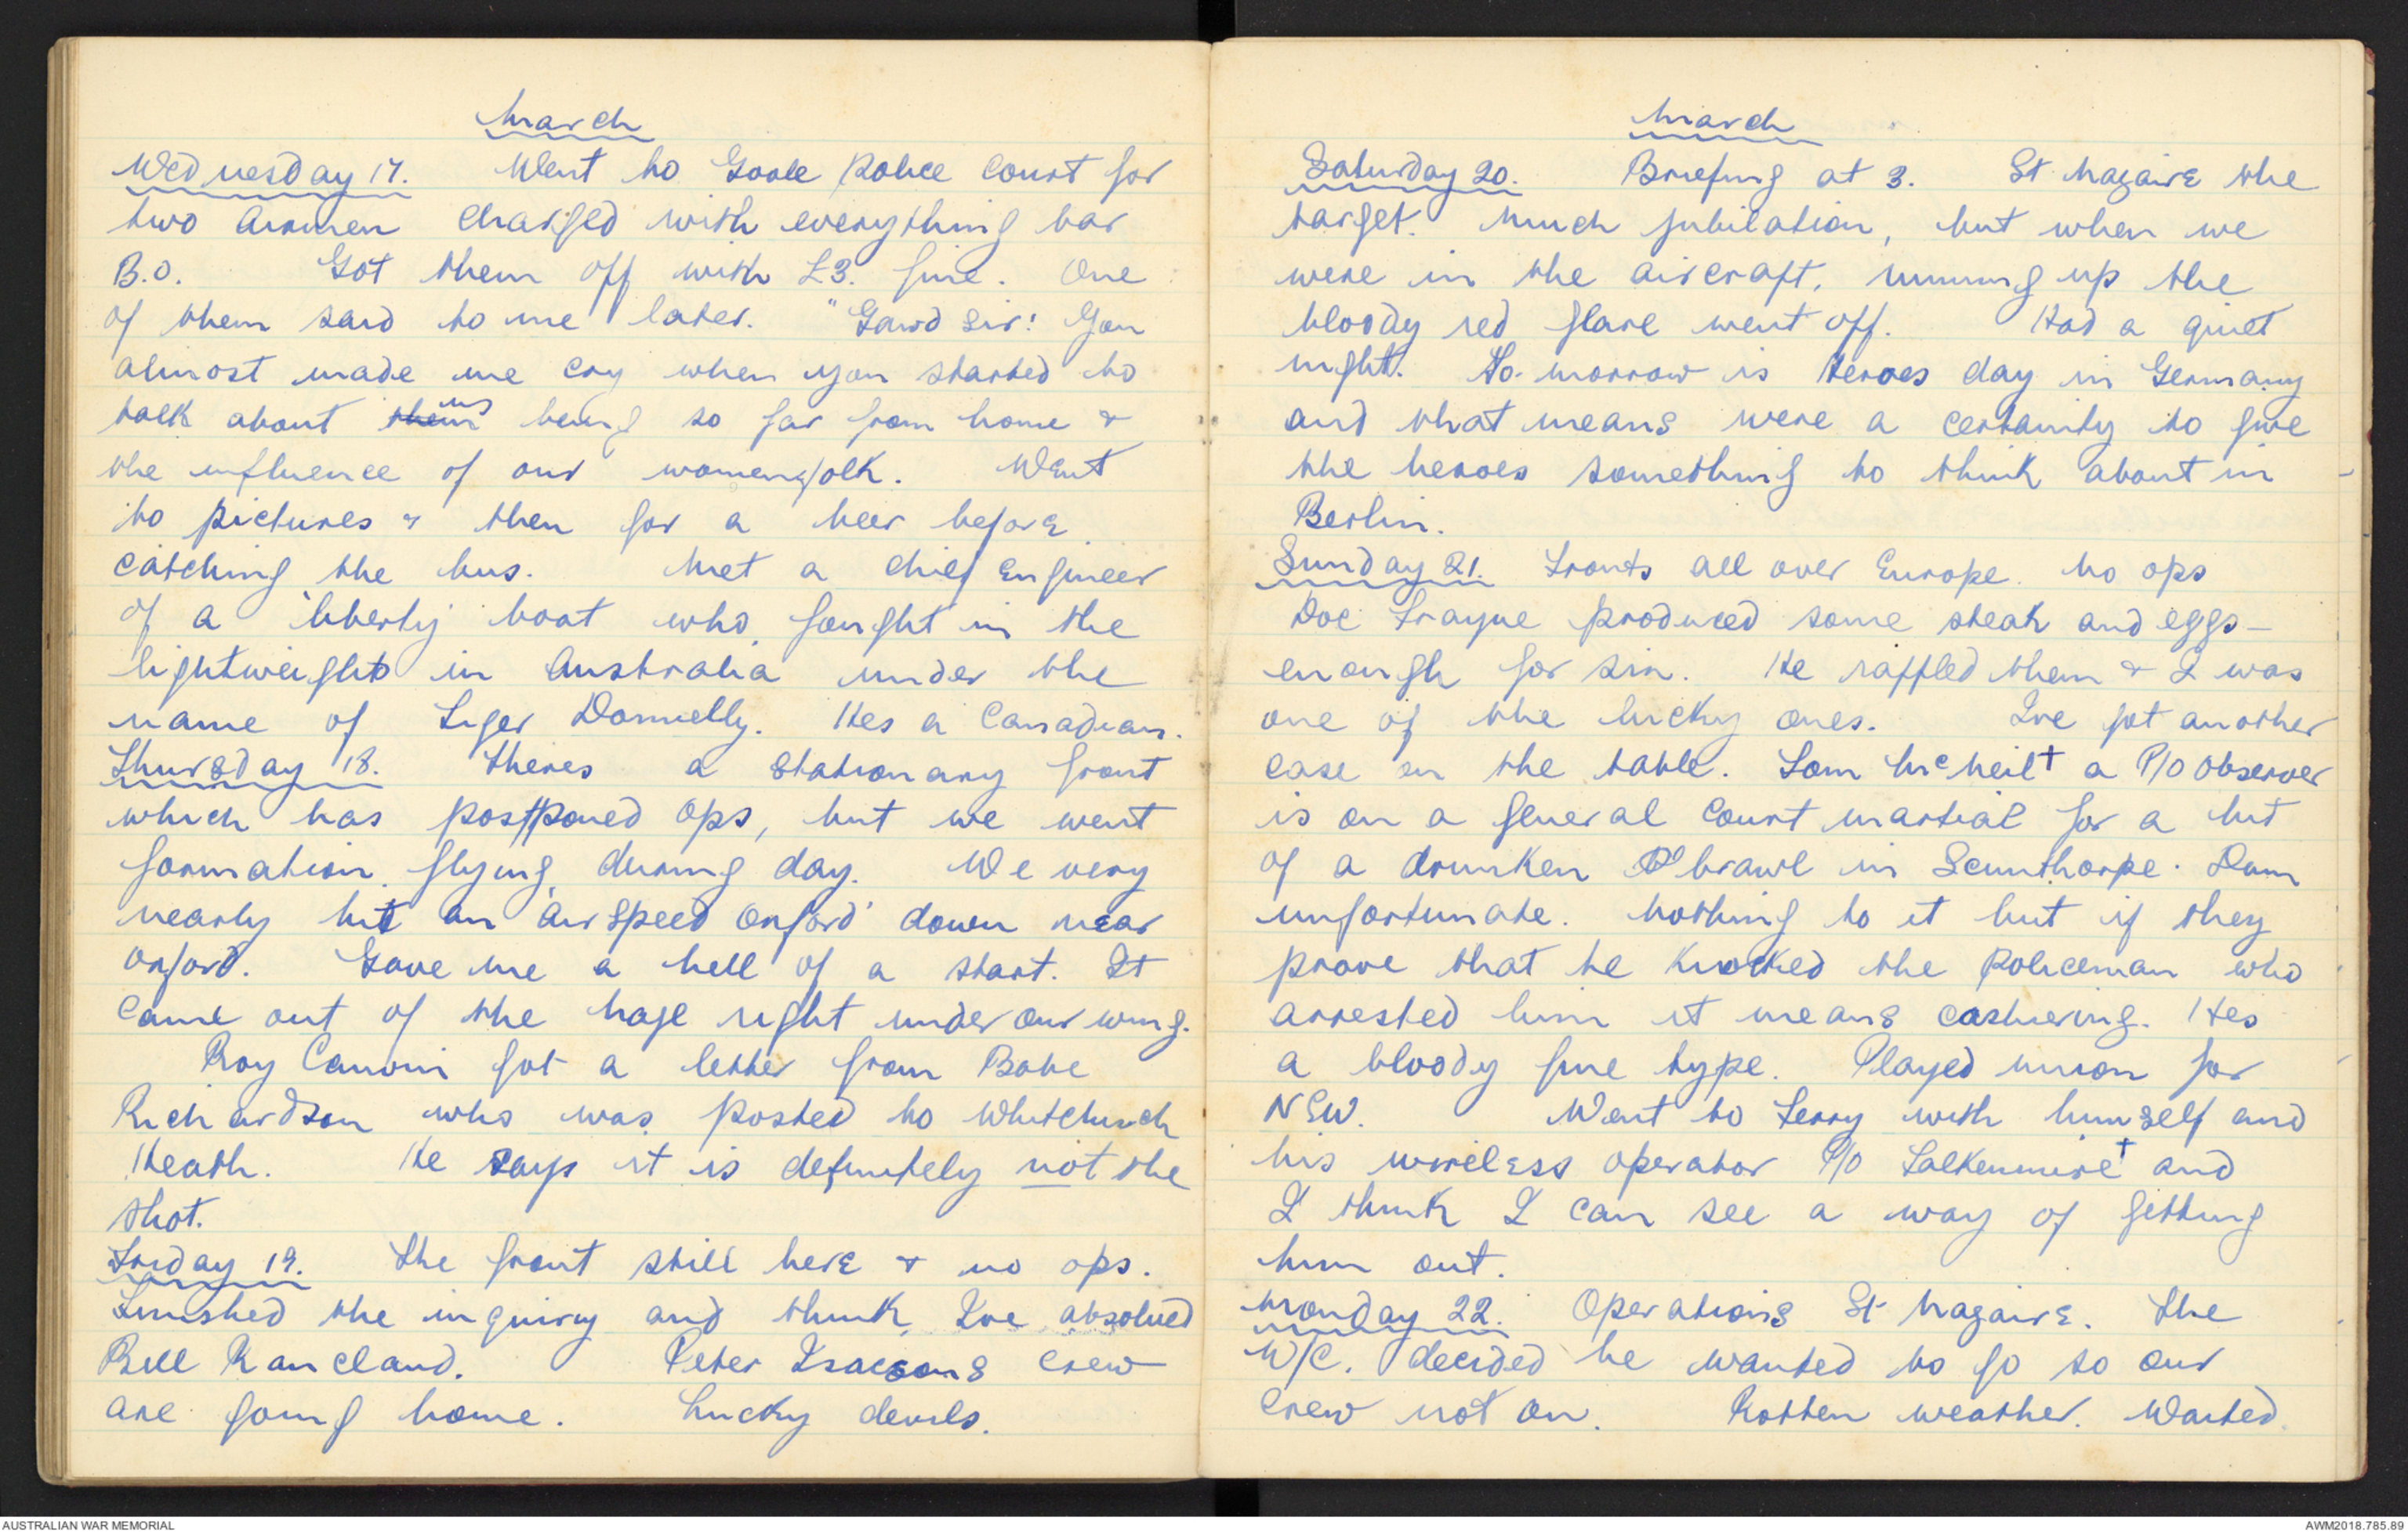 March
Wednesday 17. Went to Goole Police Court for
two airmen charged with everything bar
B.O. Got them off with £3. fine. One
of them said to me later. "Gawd Sir! You
almost made me cry when you started to
talk about ~~their~~ us being so far from home &
the influence of our womenfolk. Went
to pictures & then for a beer before
catching the bus. Met a chief engineer
of a 'liberty' boat who fought in the
lightweights in Australia under the
name of Tiger Donnelly. Hes a Canadian.
Thursday 18. Theres a stationary front
which has postponed ops, but we went
formation flying during day. We very
nearly hit an 'airspeed Oxford' down near
Oxford. Gave me a hell of a start. It
came out of the haze right under our wing.
Roy Canoin got a letter from Babe
Richardson who was posted to Whitchurch
Heath. He says it is definitely not the
shot.
Friday 19. The front still here & no ops.
Finished the inquiry and think Ive absolved
Bill Rancland. Peter Isacsons crew
are going home. Lucky devils.
March
Saturday 20. Briefing at 3. St Nazaire the
target. Much jubilation, but when we
were in the aircraft, running up the
bloody red flare went off. Had a quiet
night. To-morrow is Heroes day in Germany
and that means were a certainty to give
the heroes something to think about in
Berlin.
Sunday 21. Fronts all over Europe. No ops
Doc Trayne produced some steak and eggs -
enough for six. He raffled them & I was
one of the lucky ones. Ive got another
case on the table. Tom McNeil† a P/O Observer
is on a general court martial for a bit
of a drunken brawl in Scunthorpe. Dam
unfortunate. Nothing to it but if they
prove that he knocked the policeman who
arrested him it means cashiering. Hes
a bloody fine type. Played union for
NSW. Went to Ferry with himself and
his wireless operator P/O Falkenmire† and
I think I can see a way of getting
him out.
Monday 22. Operations St Nazaire. The
W/C. decided he wanted to go so our
crew not on. Rotten weather. Waited
AUSTRALIAN WAR MEMORIAL
AWM2018.785.89